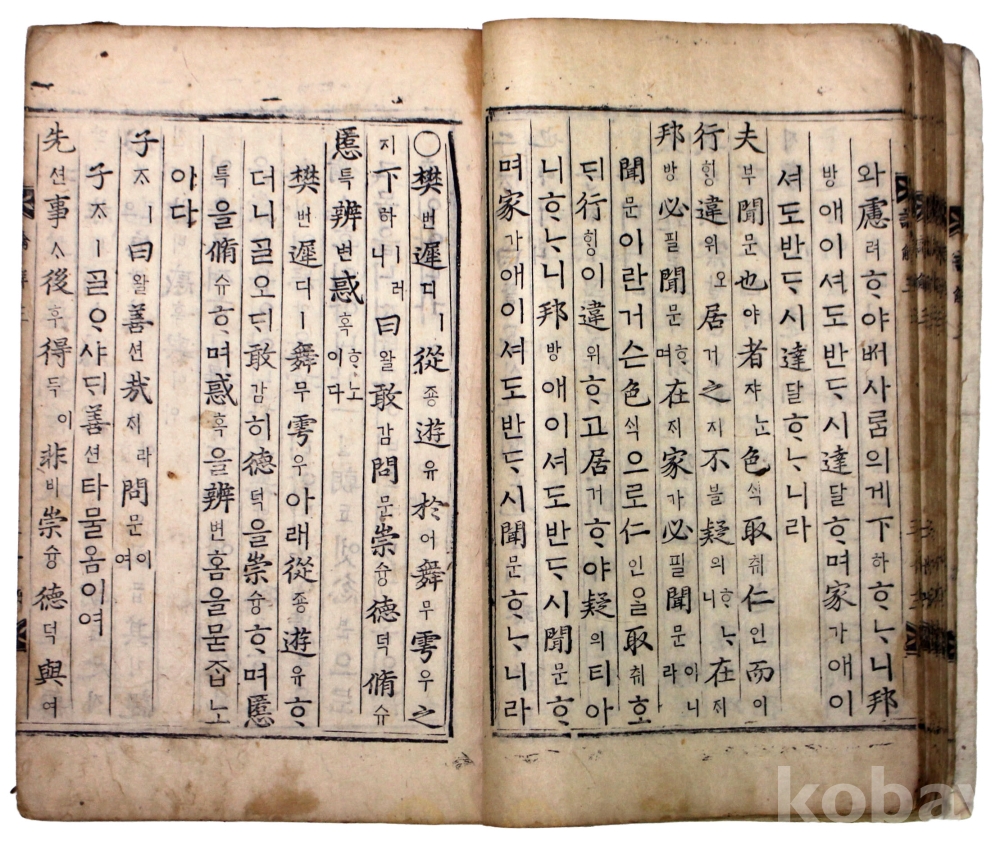 와慮려ᄒᆞ야ᄡᅥ사룸의게下하ᄒᆞᄂᆞ니邦
방애이셔도반ᄃᆞ시達달ᄒᆞ며家가애이
셔도반ᄃᆞ시達달ᄒᆞᄂᆞ니라
夫부聞문也야者쟈ᄂᆞᆫ色ᄉᆡᆨ取취仁인而이
行ᄒᆡᆼ違위오居거之지不블疑의ᄒᆞᄂᆞ니在ᄌᆡ
邦방必필聞문ᄒᆞ며在ᄌᆡ家가必필聞문이니라
聞문아란거슨色ᄉᆡᆨ으로仁인을取취호
ᄃᆡ行ᄒᆡᆼ이違위ᄒᆞ고居거ᄒᆞ야疑의티아
니ᄒᆞᄂᆞ니邦방애이셔도반ᄃᆞ시聞문ᄒᆞ
며家가애이셔도반ᄃᆞ시聞문ᄒᆞᄂᆞ니라
○樊번遲디ㅣ從죵遊유於어舞무雩우之
지下하ㅣ러니曰왈敢감問문崇슝德덕脩슈
慝특辨변惑혹ᄒᆞ노이다
樊번遲디ㅣ舞무雩우아래從죵遊유ᄒᆞ
더니ᄀᆞᆯ오ᄃᆡ敢감히德덕을崇슝ᄒᆞ며慝
특을脩슈ᄒᆞ며惑혹을辨변홈을묻ᄌᆞᆸ노
이다
子ᄌᆞㅣ曰왈善션哉ᄌᆡ라問문이여
子ᄌᆞㅣᄀᆞᆯᄋᆞ샤ᄃᆡ善션타물옴이여
先션事ᄉᆞ後후得득이非비崇슝德덕與여
koba